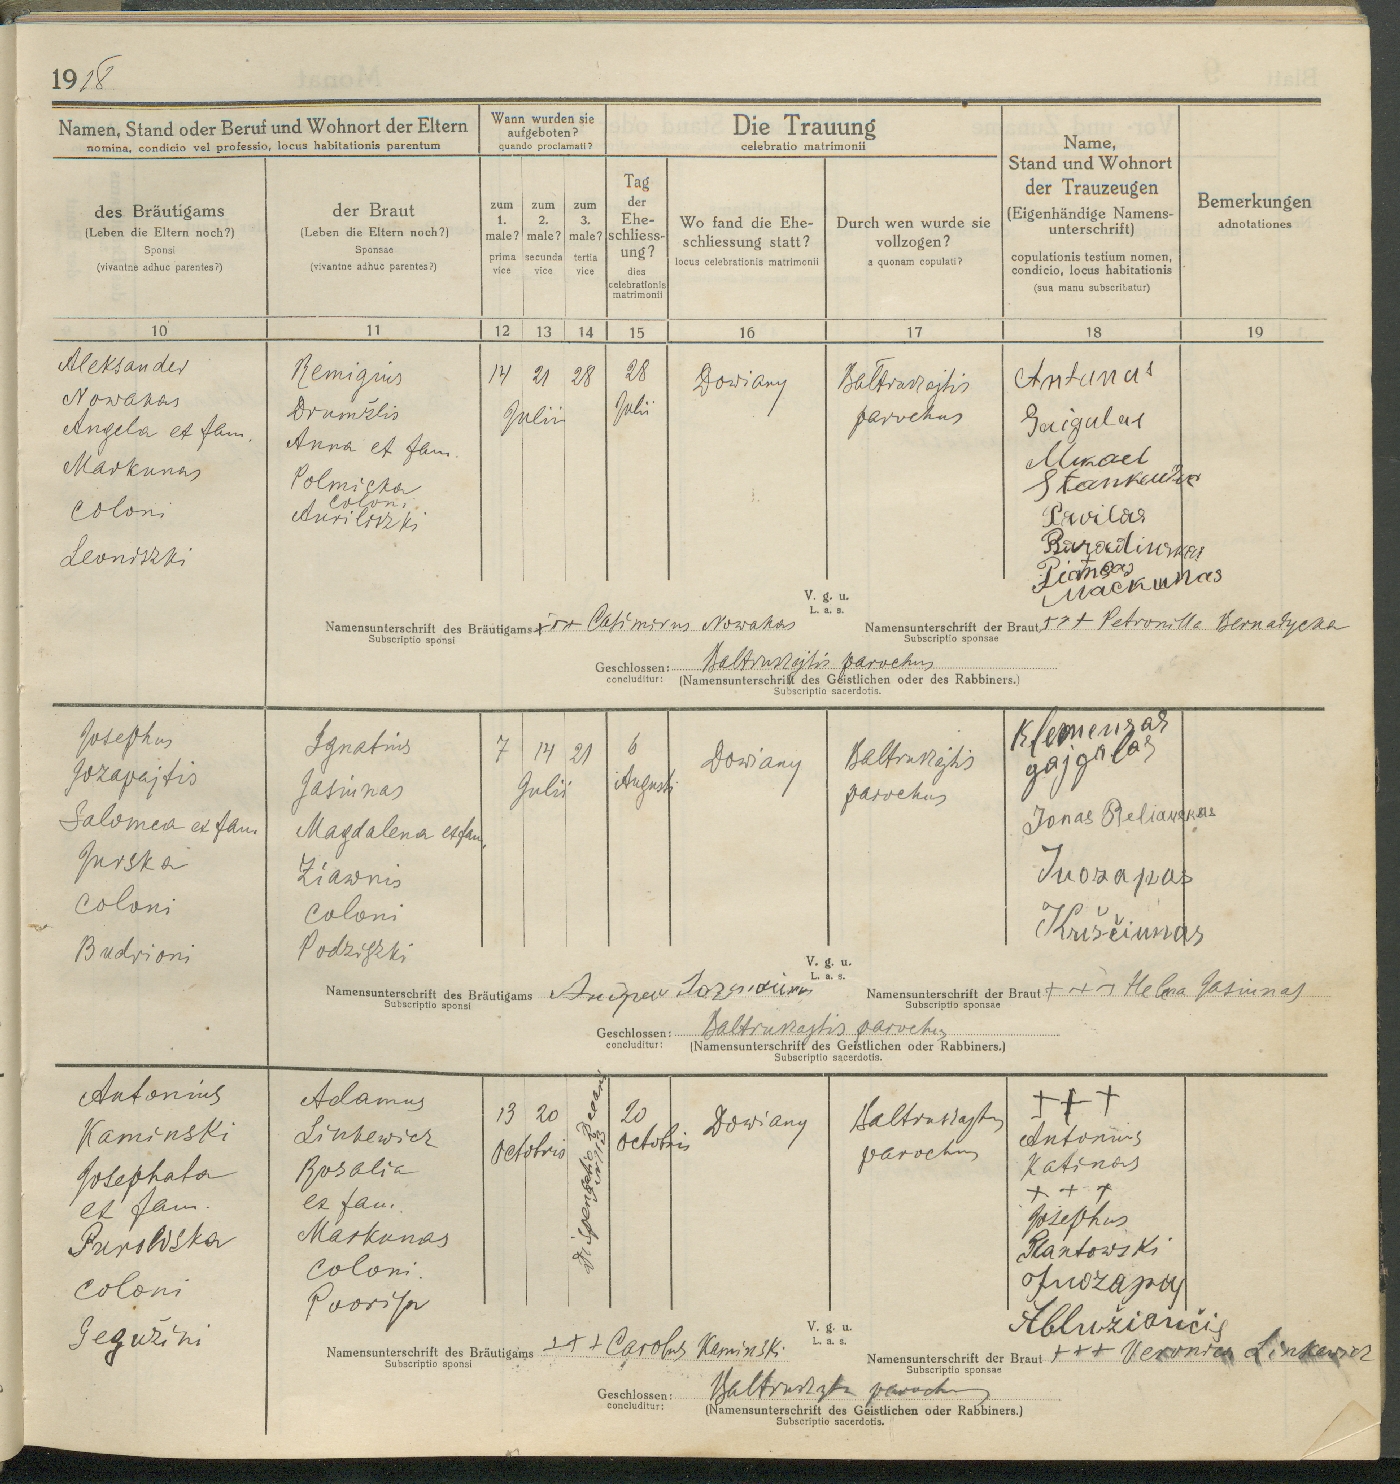 1918
Namen, Stand oder Beruf und Wohnort der Eltern
nomina, condicio vel professio, locus habitationis parentum
Wann wurden sie
aufgeboten?
quando proclamati?
Die Trauung
celebratio matrimonii
Name,
Stand und Wohnort
der Trauzeugen
(Eigenhändige Namens-
unterschrift)
copulationis testium nomen,
condicio, locus habitationis
(sua manu subscribatur)
Bemerkungen
adnotationes
des Bräutigams
(Leben die Eltern noch?)
Sponsi
(vivantne adhuc parentes?)
der Braut
(Leben die Eltern noch?)
Sponsae
(vivantne adhuc parentes?)
zum
1.
male?
prima
vice
zum
2.
male?
secunda
vice
zum
3.
male?
tertia
vice
Tag
der
Ehe-
schliess-
ung?
dies
celebrationis
matrimonii
Wo fand die Ehe-
schliessung statt?
locus celebrationis matrimonii
Durch wen wurde sie
vollzogen?
a quonam copulati?
10 11 12 13 14 15 16 17 18 19
Aleksander
Nowakas
Angela et fam.
Markunas
coloni
Leoniszki
Remigius
Drumślis
Anna et fam.
Polmicka
coloni
Auriliszki
14 21 28
Julii
28
Julii
Dowiany
Baltruszajtis
parochus
Antanas
Gaigalas
Mikael
Stankewičius
Povilas
Baradinskas
Piatras
Mackunas
V. g. u.
L. a. s.
Namensunterschrift des Bräutigams +++ Casimirus Nowakas
Subscriptio sponsi
Namensunterschrift der Braut +++ Petronilla Bernatycka
Subscriptio sponsae
Geschlossen: Baltruszajtis parochus
concluditur: (Namensunterschrift des Geistlichen oder des Rabbiners.)
Subscriptio sacerdotis.
Josephus
Jozapajtis
Salomea et fam.
Jurska
coloni
Budrioni
Ignatius
Jasiunas
Magdalena et fam.
Ziawnis
coloni
Podziszki
7 14 21
Julii
6
Augusti
Dowiany
Baltruszajtis
parochus
Klemensas
gajgalas
Jonas Beliawskas
Juozapas
Kriščiunas
V. g. u.
L. a. s.
Namensunterschrift des Bräutigams
Subscriptio sponsi
Namensunterschrift der Braut +++ Helena Jasiunas
Subscriptio sponsae
Geschlossen: Baltruszajtis parochus
concluditur: (Namensunterschrift des Geistlichen oder Rabbiners.)
Subscriptio sacerdotis.
Antonius
Kaminski
Josephata
et fam.
Purolska
coloni
Gegužini
Adamus
Linkewicz
Rosalia
et fam.
Markunas
coloni.
13 20
octobris
Dispensatio Decani
20
octobris
Dowiany
Baltruszajtis
parochus
+++
Antonius
Katinas
+++
Josephus
Rantowski
Juozapas
Ablužiančis
V. g. u.
L. a. s.
Namensunterschrift des Bräutigams +++ Carolus Kaminski
Subscriptio sponsi
Namensunterschrift der Braut +++ Veronica Linkewicz
Subscriptio sponsae
Geschlossen: Baltruszajtis parochus
concluditur: (Namensunterschrift des Geistlichen oder Rabbiners.)
Subscriptio sacerdotis.